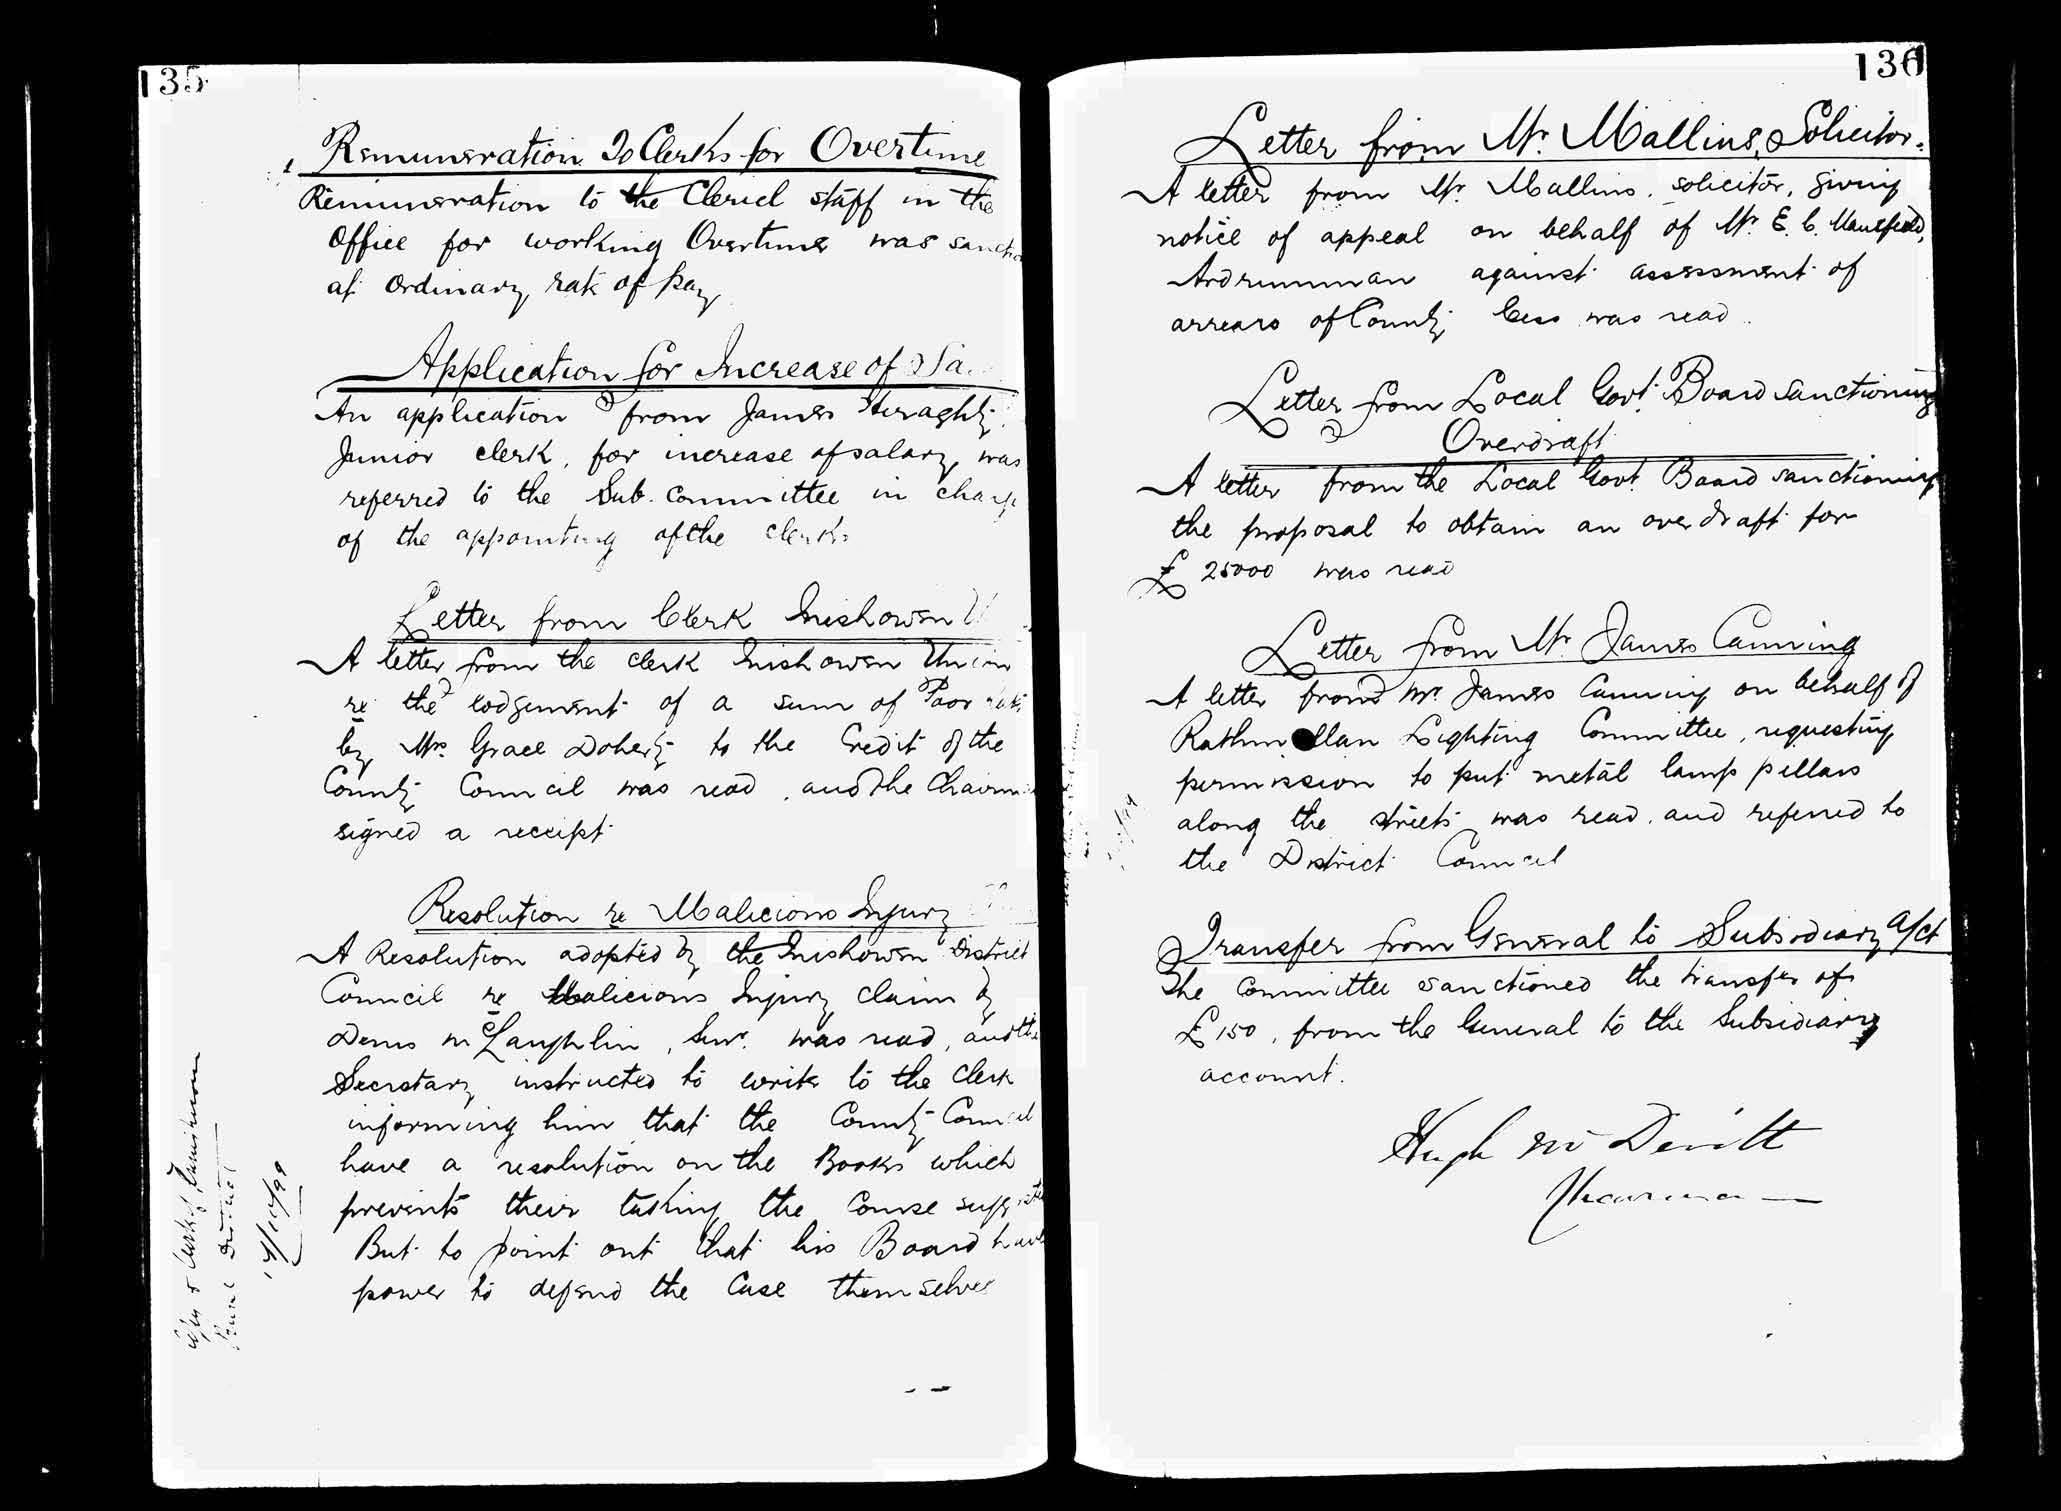 135
Remuneration To Clerks for Overtime
Remuneration to the Clerical staff in the
Office for working Overtime was
at Ordinary rate of pay
Application for Increase of
An application from James Heraghty
Junior clerk, for increase of salary was
referred to the Sub. Committee in charge
of the appointing of the clerks
Letter from Clerk Inishowen
A letter from the clerk Inishowen Union
re the lodgement of a sum of Poor rate
by Mrs. Grace Doherty to the Credit of the
County Council was read, and the Chairman
signed a receipt
Resolution re Malicious Injury
A Resolution adopted by the Inishowen District
Council re Malicious Injury claim by
Denis McLaughlin, Senr. was read, and the
Secretary instructed to write to the Clerk
informing him that the County Council
have a resolution on the Books which
prevents their taking the course
But to point out that his Board have
power to defend the Case themselves
Clerk Inishowen
Rural District
14/10/99
136
Letter from Mr. Mallins, Solicitor.
A letter from Mr. Mallins, solicitor, giving
notice of appeal on behalf of Mr. E. C. Mansfield,
Ardrumman against assessment of
arrears of County Cess was read.
Letter from Local Govt. Board sanctioning
Overdraft
A letter from the Local Govt. Board sanctioning
the proposal to obtain an overdraft for
£25000 was read
Letter from Mr. James Canning
A letter from Mr. James Canning on behalf of
Rathmullan Lighting Committee, requesting
permission to put metal lamp pillars
along the streets was read, and referred to
the District Council
Transfer from General to Subsidiary a/ct
The Committee sanctioned the transfer of
£150, from the General to the Subsidiary
account.
Hugh McDevitt
Chairman